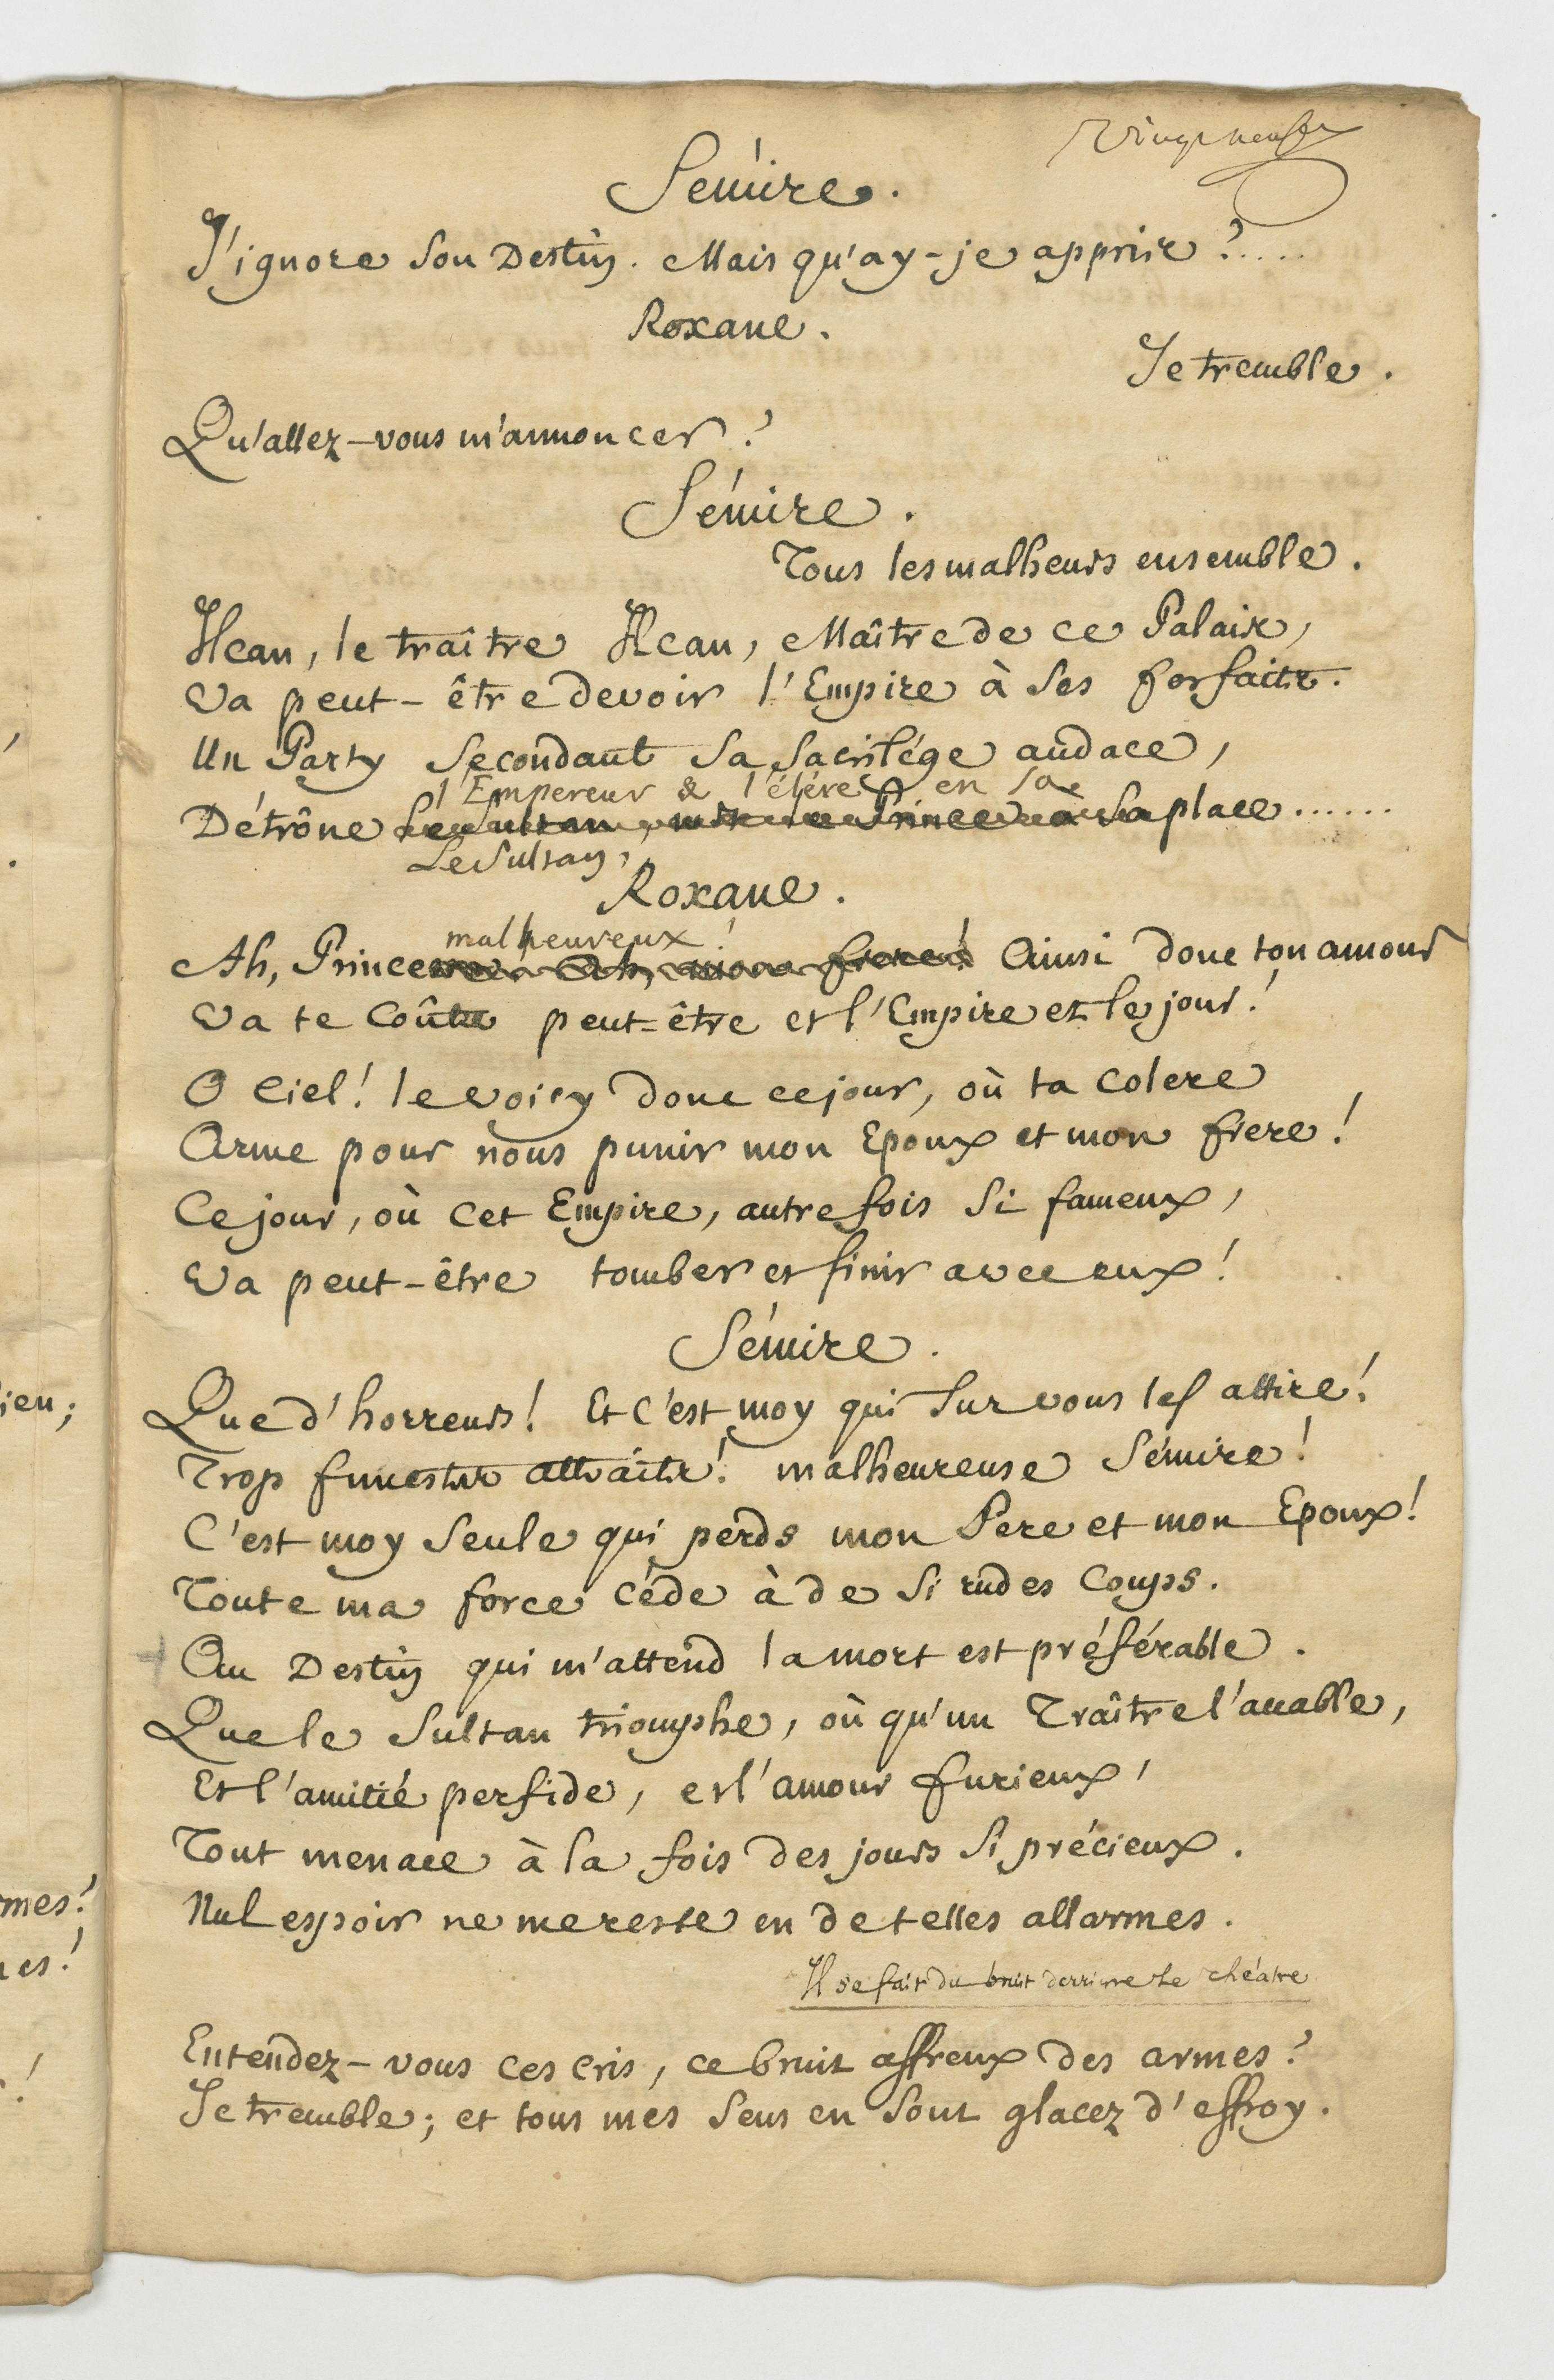 Vingt neuf
Sémire.
J'ignore son Destin. Mais qu'ay-je appris?.....
Roxane.
Je tremble.
Qu'allez-vous m'annoncer?
Sémire.
Tous les malheurs ensemble.
Hcan, le traître Hcan, Maître de ce Palais,
Va peut-être devoir l'Empire à ses forfaits.
Un Party secondant sa sacrilége audace,
l'Empereur & l'éléve en sa
Détrône Le Sultan, met le Prince à sa place......
Le Sultan,
Roxane.
malheureux!
Ah, Prince Ah, mon frere! Ainsi donc ton amour
Va te Coûter peut-être et l'Empire et le jour!
O Ciel! le voicy donc ce jour, où ta colere
Arme pour nous punir mon Epoux et mon frere!
Ce jour, où cet Empire, autrefois si fameux,
Va peut-être tomber et finir avec eux!
Sémire.
Que d'horreurs! Et c'est moy qui sur vous les attire!
Trop funestes attraits! malheureuse Sémire!
C'est moy seule qui perds mon Pere et mon Epoux!
Toute ma force céde à de si rudes Coups.
Au Destin qui m'attend la mort est préférable.
Que le Sultan triomphe, où qu'un Traître l'accable,
Et l'amitié perfide, et l'amour furieux,
Tout menace à la fois des jours si précieux.
Nul espoir ne me reste en de telles allarmes.
Il se fait du bruit derriere le théatre
Entendez-vous ces cris, ce bruit affreux des armes?
Je tremble; et tous mes sens en sont glacez d'effroy.
ien;
mes?
es!
!